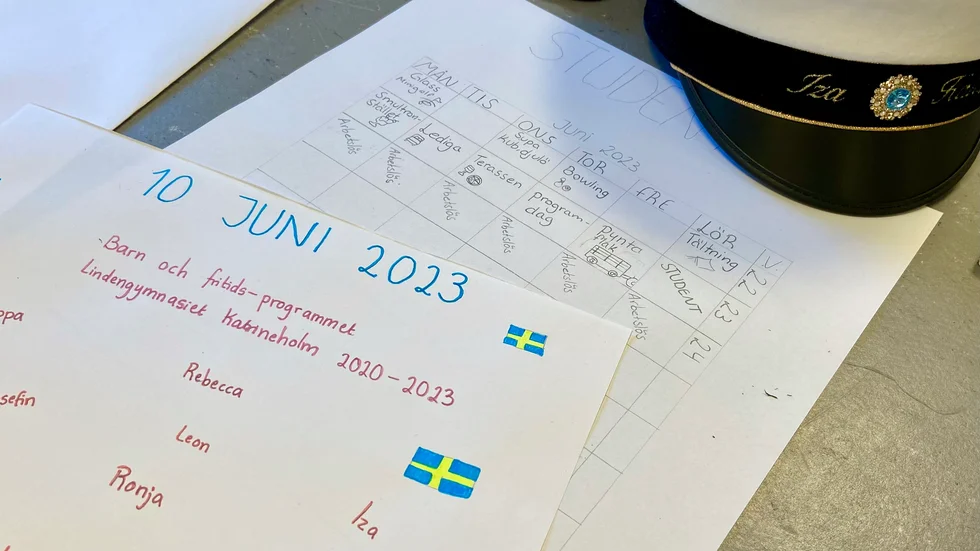 10 JUNI 2023
Barn och fritids-programmet
Lindengymnasiet Katrineholm 2020-2023
Rebecca
Leon
Ronja
Iza
STUDEN
Juni 2023
MÅN TIS ONS TOR FRE LÖR V.
Glass
Supa
Kubb
Bowling
Tältning
22
Smultron-
stället
Lediga
Terassen
program-
dag
Pynta
flak
STUDENT
23
Arbetslös
Arbetslös
Arbetslös
Arbetslös
Arbetslös
Arbetslös
24
Iza